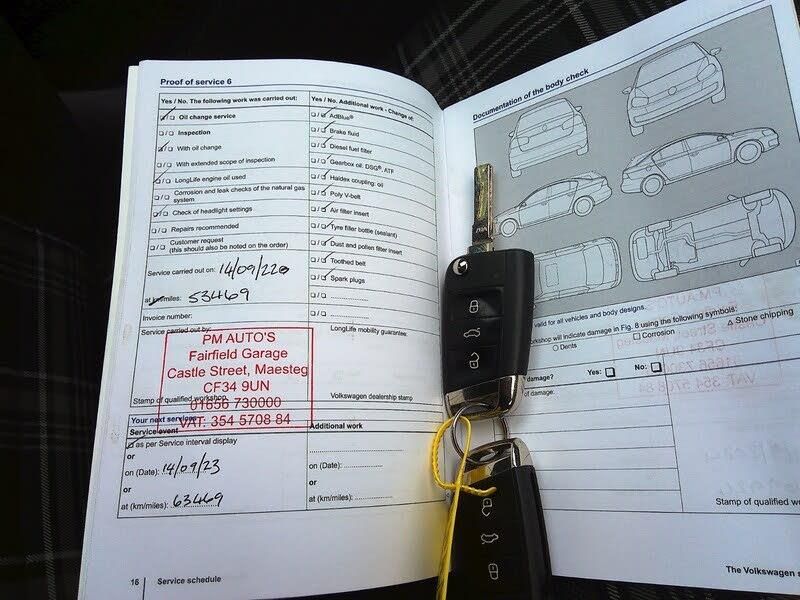 Proof of service 6
Yes / No. The following work was carried out:
Oil change service
Inspection
With oil change
With extended scope of inspection
LongLife engine oil used
Corrosion and leak checks of the natural gas
system
Check of headlight settings
Repairs recommended
Customer request
(this should also be noted on the order)
Service carried out on: 14/09/220
at km/miles: 53469
Invoice number:
Service carried out by:
PM AUTO'S
Fairfield Garage
Castle Street, Maesteg
CF34 9UN
01656 730000
VAT: 354 5708 84
Stamp of qualified workshop
Your next services
Service event
as per Service interval display
or
on (Date): 14/09/23
or
at (km/miles): 63469
Yes / No. Additional work - Change of:
AdBlue®
Brake fluid
Diesel fuel filter
Gearbox oil: DSG®, ATF
Haldex coupling: oil
Poly V-belt
Air filter insert
Tyre filler bottle (sealant)
Dust and pollen filter insert
Toothed belt
Spark plugs
LongLife mobility guarantee:
Volkswagen dealership stamp
Additional work
on (Date):
or
at (km/miles):
16 Service schedule
Documentation of the body check
valid for all vehicles and body designs.
kshop will indicate damage in Fig. 8 using the following symbols:
○ Dents □ Corrosion Δ Stone chipping
damage? Yes: No:
of damage:
Stamp of qualified wo
The Volkswagen s